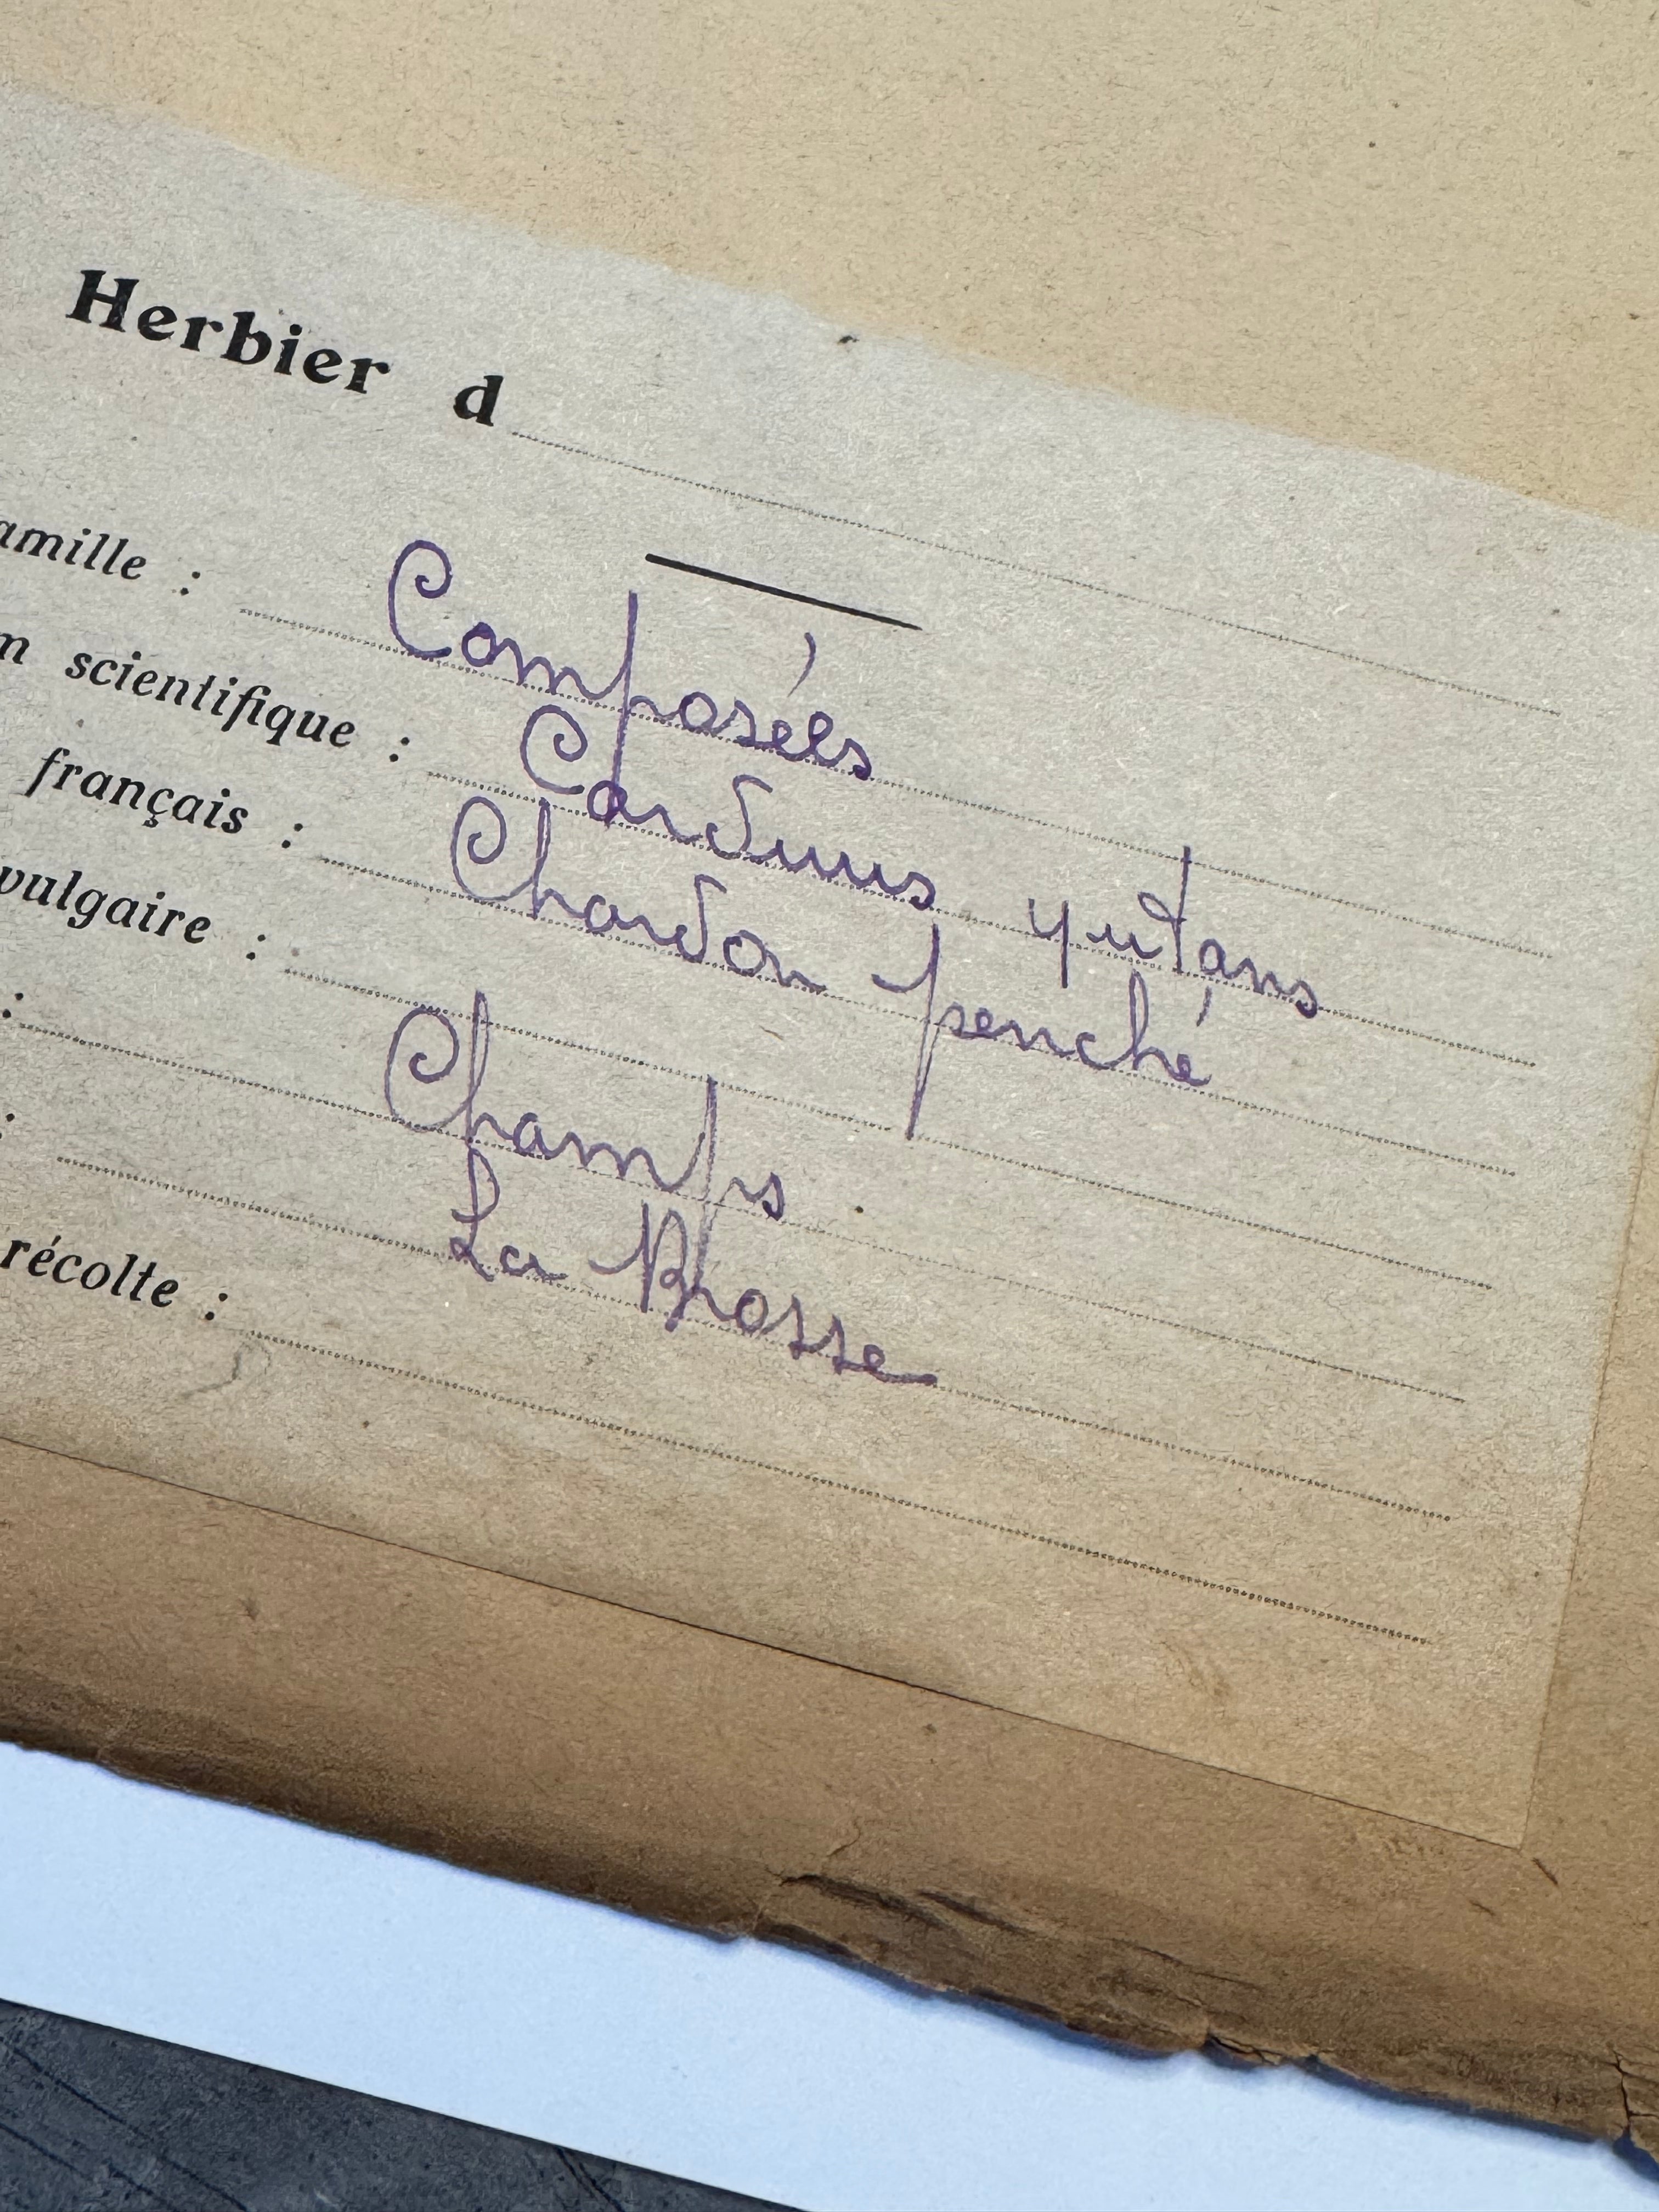 Herbier d
amille : Composées
m scientifique : Carduus yutans
français : Chardon penché
vulgaire :
: Champs.
: La Brosse
récolte :